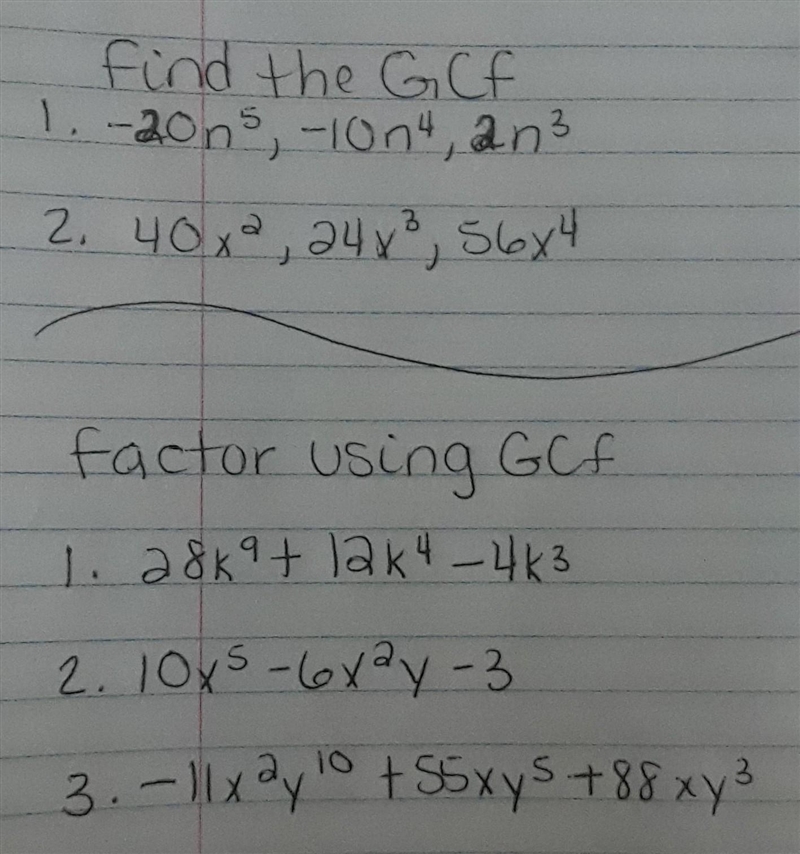 Find the GCF
1. -20n⁵, -10n⁴, 2n³
2. 40x², 24x³, 56x⁴
Factor using GCF
1. 28k⁹ + 12k⁴ - 4k³
2. 10x⁵ - 6x²y - 3
3. -11x²y¹⁰ + 55xy⁵ + 88xy³